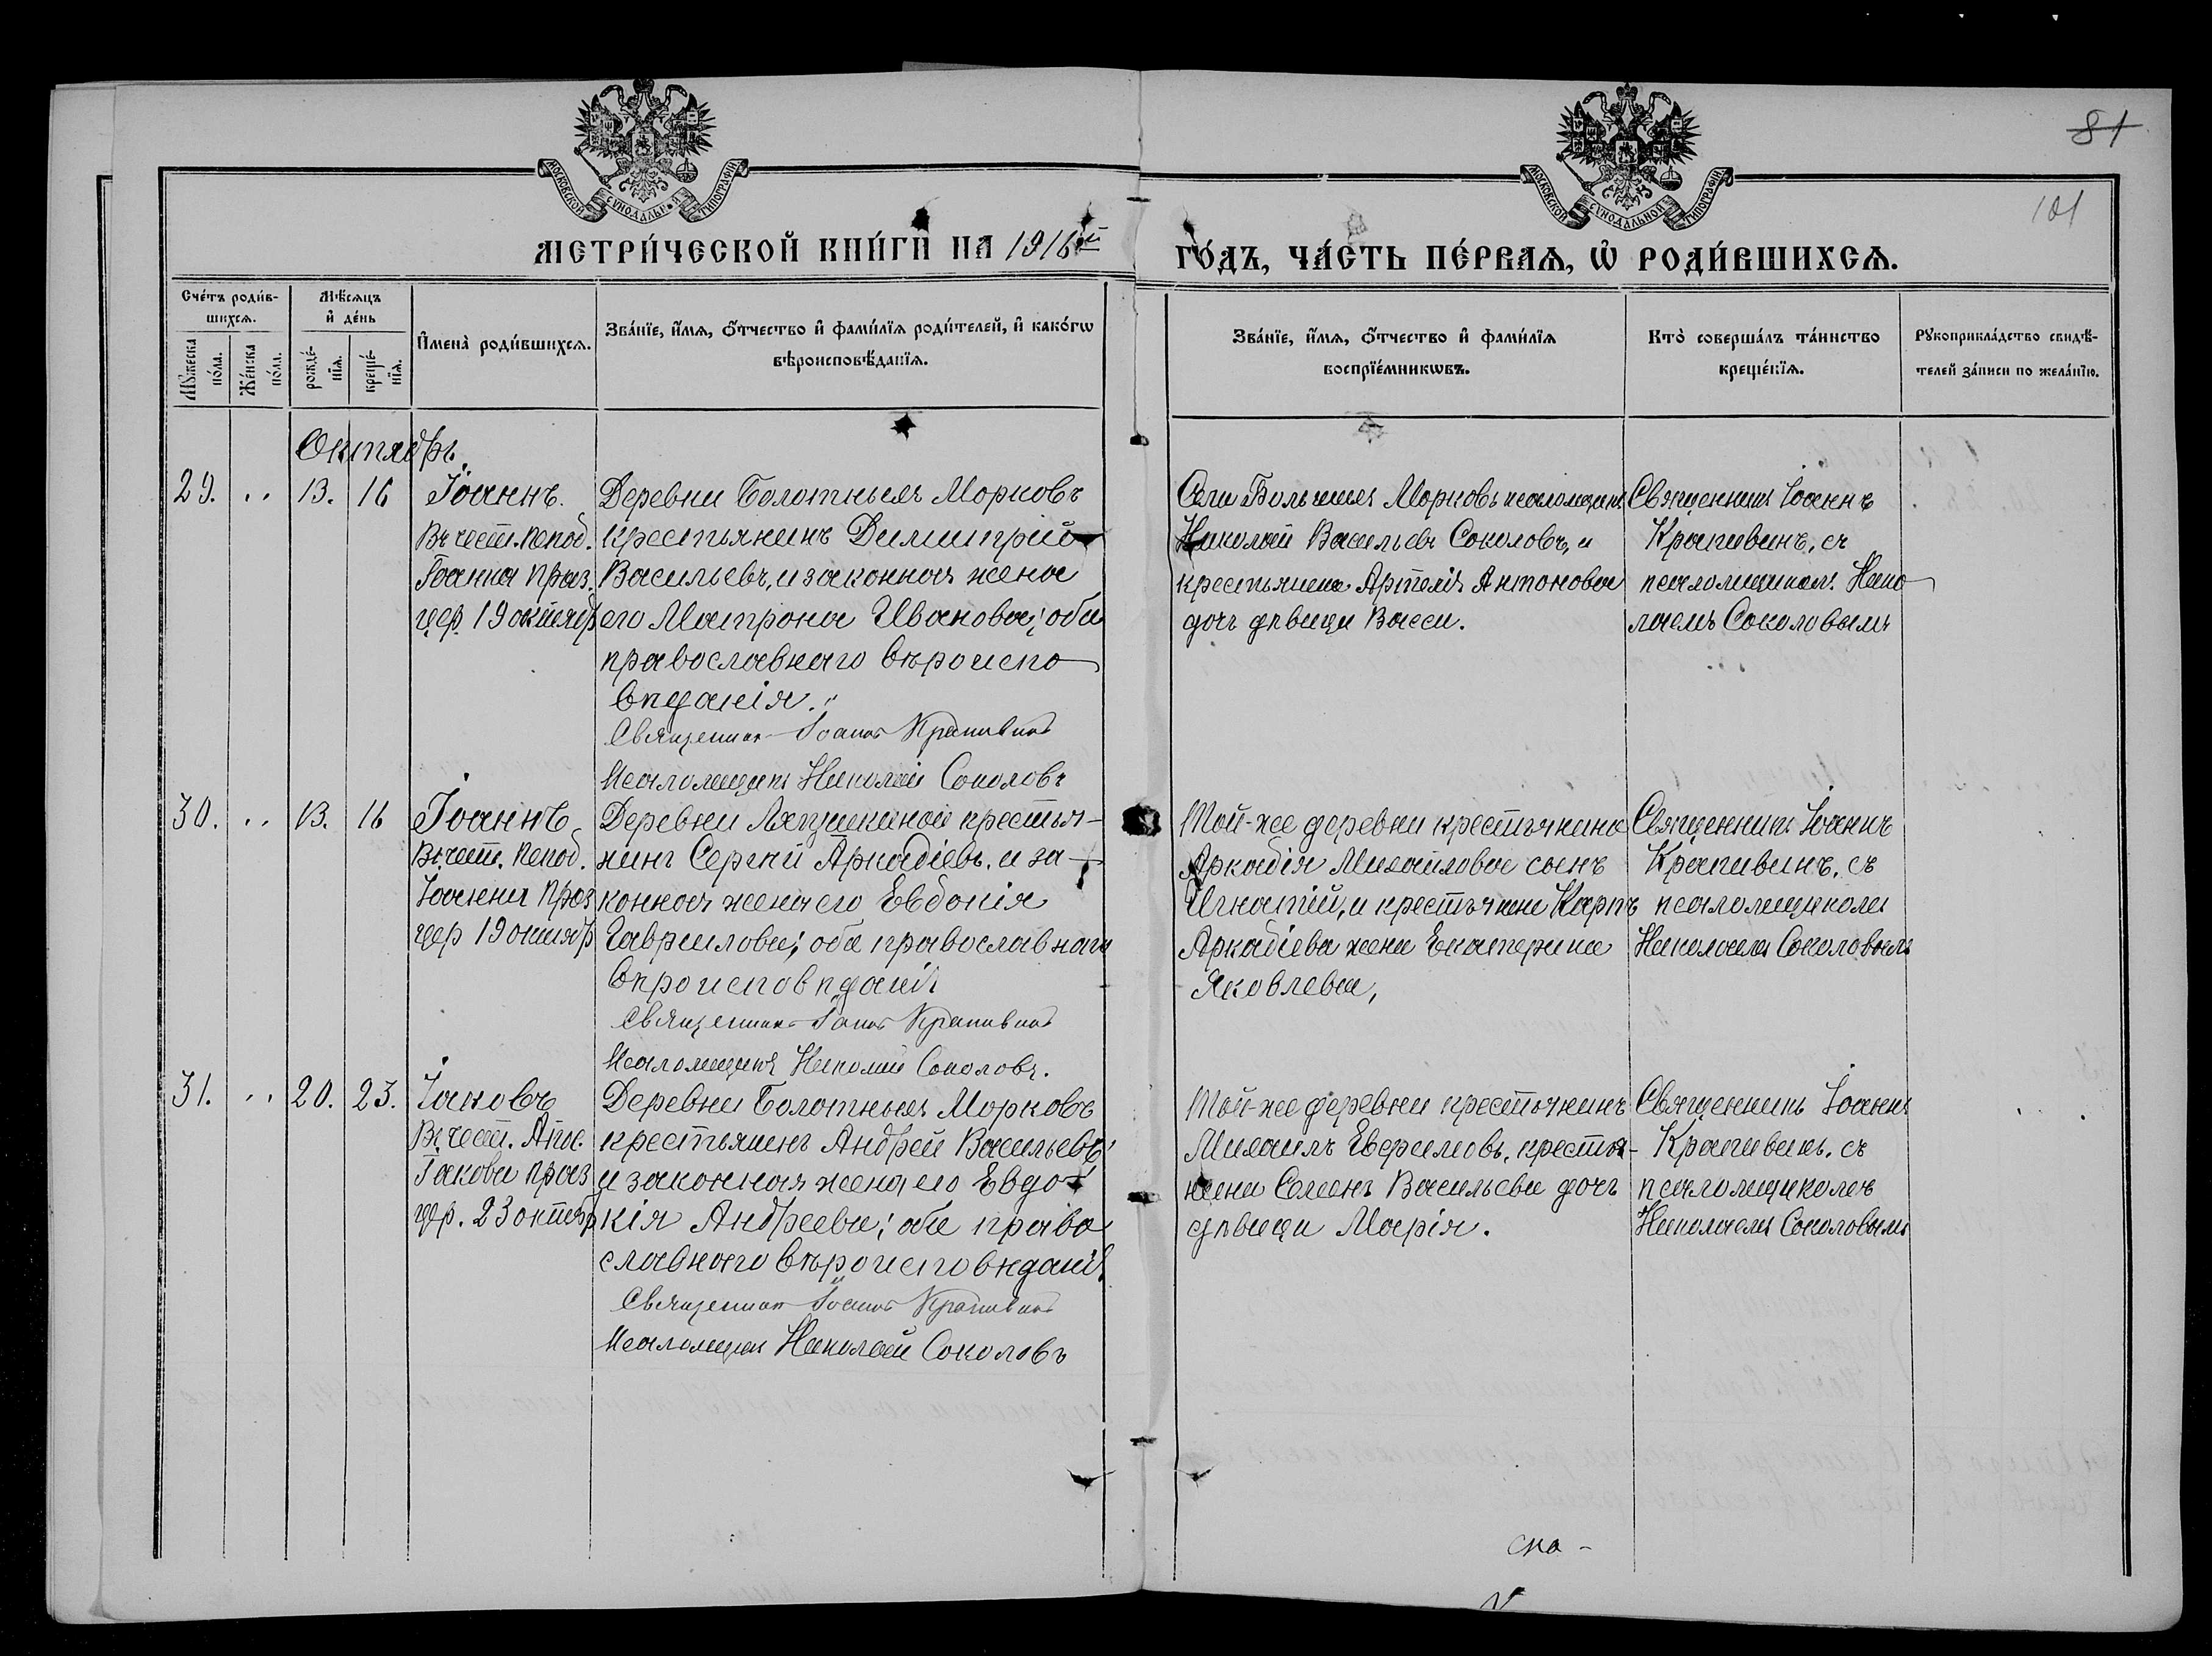 81
101
МОСКОВСКОЙ СѴНОДАЛЬНОЙ ТИПОГРАФІИ
МОСКОВСКОЙ СѴНОДАЛЬНОЙ ТИПОГРАФІИ
МЕТРИ́ЧЕСКОЙ КНИ́ГИ НА 1916й ГО́ДЪ, ЧА́СТЬ ПЕ́РВАѦ, Ѡ РОДИ́ВШИХСѦ.
Сче́тъ роди́в-
шихсѧ.
Мꙋ́жеска по́ла.
Же́нска по́ла.
Мѣ́сѧцъ
и҆ де́нь
рожде́-
нїѧ.
креще́-
нїѧ.
И҆мена̀ роди́вшихсѧ.
Зва́нїе, и҆́мѧ, ѻ҆́тчество и҆ фами́лїѧ роди́телей, и҆ како́гѡ
вѣроисповѣ́данїѧ.
Зва́нїе, и҆́мѧ, ѻ҆́тчество и҆ фами́лїѧ
воспрїе́мникѡвъ.
Кто̀ соверша́лъ та́инство
креще́нїѧ.
Рꙋкоприкла́дство свидѣ́-
телей за́писи по жела́нїю.
Октябрь.
29. .. 13. 16
Іоаннъ.
Въ чест. Препод.
Іоанна праз.
цер. 19 октябр
Деревни Болотныхъ Морковъ
крестьянинъ Димитрій
Васильевъ, и законная жена
его Матрона Иванова; оба
православнаго вѣроиспо
вѣданія.
Священникъ Іоаннъ Крапивинъ
Псаломщикъ Николай Соколовъ
Села Большихъ Морковъ псаломщикъ
Николай Васильевъ Соколовъ, и
крестьянина Артемія Антонова
дочь дѣвица Васса.
Священникъ Іоаннъ
Крапивинъ, съ
псаломщикомъ Нико
лаемъ Соколовымъ
30. .. 13. 16
Іоаннъ
Въ чест. Препод.
Іоанна праз
цер 19 октябр
Деревни Ляпушкиной крестья-
нинъ Сергѣй Аркадіевъ, и за-
конная жена его Евдокія
Гаврилова; оба православнаго
вѣроисповѣданія
Священникъ Іоаннъ Крапивинъ
Псаломщикъ Николай Соколовъ.
Той-же деревни крестьянина
Аркадія Михайлова сынъ
Игнатій, и крестьянина Карпа
Аркадіева жена Екатерина
Яковлева,
Священникъ Іоаннъ
Крапивинъ, съ
псаломщикомъ
Николаемъ Соколовымъ
31. .. 20. 23.
Іаковъ
Въ чест. Апос.
Іакова праз
цер. 23 октяб
Деревни Болотныхъ Морковъ
крестьянинъ Андрей Васильевъ
и законная жена его Евдо
кія Андреева; оба право
славнаго вѣроисповѣданія
Священникъ Іоаннъ Крапивинъ
Псаломщикъ Николай Соколовъ
Той-же деревни крестьянинъ
Михаилъ Ефремовъ, крестья-
нина Семена Васильева дочь
дѣвица Марія.
Священникъ Іоаннъ
Крапивинъ, съ
псаломщикомъ
Николаемъ Соколовымъ
ска -